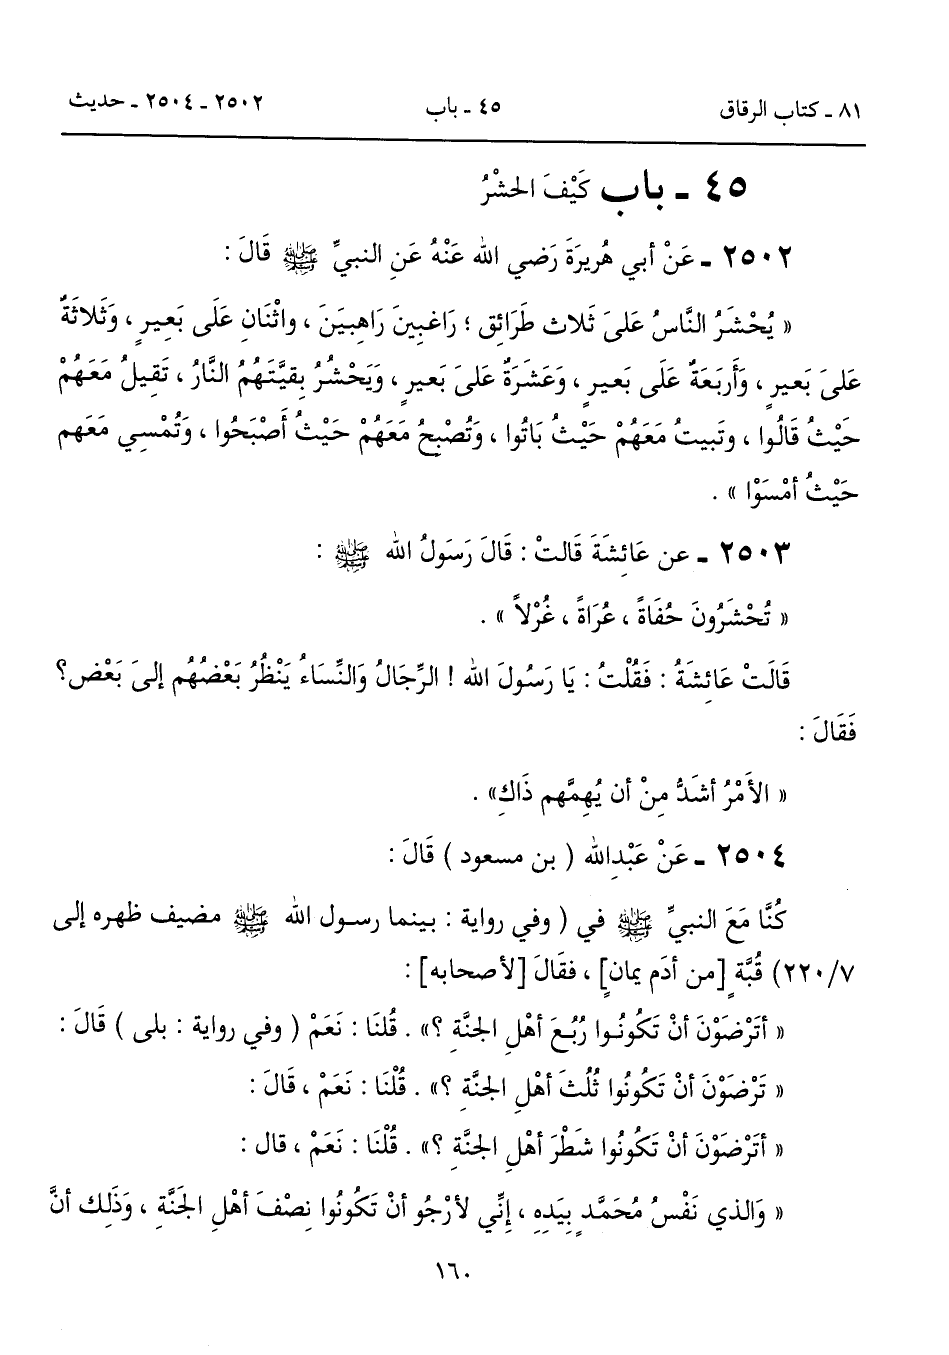 ٨١ ـ كتاب الرقاق ٤٥ ـ باب ٢٥٠٢ ـ ٢٥٠٤ ـ حديث
٤٥ ـ باب كَيْفَ الحشْرُ
٢٥٠٢ ـ عَنْ أبي هُريرَةَ رَضي الله عَنْهُ عَنِ النبيِّ ﷺ قَالَ :
« يُحْشَرُ النَّاسُ عَلىَ ثَلاث طَرَائِق ؛ رَاغبِينَ رَاهِبِينَ ، واثْنَانِ عَلَى بَعيرٍ ، وَثَلاثَةٌ
عَلىَ بَعيرٍ ، وَأَربَعَةٌ عَلَى بَعيرٍ ، وَعَشرَةٌ عَلىَ بَعيرٍ ، وَيَحْشُرُ بقيَّتَهُمُ النَّارُ ، تَقيلُ مَعَهُمْ
حَيْثُ قَالُوا ، وتَبيتُ مَعَهُمْ حَيْثُ بَاتُوا ، وَتُصْبحُ مَعَهُمْ حَيْثُ أَصْبَحُوا ، وَتُمْسِي مَعَهم
حَيْثُ أمْسَوْا » .
٢٥٠٣ ـ عن عَائِشَةَ قَالتْ : قَالَ رَسَولُ الله ﷺ :
« تُحْشَرُونَ حُفَاةً ، عُرَاةً ، غُرْلاً » .
قَالَتْ عَائِشَةُ : فَقُلْتُ : يَا رَسُولَ الله ! الرِّجَالُ وَالنِّسَاءُ يَنْظُرُ بَعْضُهُم إلىَ بَعْض؟
فَقَالَ :
« الأَمْرُ أشَدُّ مِنْ أن يُهِمَّهم ذَاكِ» .
٢٥٠٤ ـ عَنْ عَبْدِالله ( بن مسعود ) قَالَ :
كُنَّا مَعَ النبيِّ ﷺ في ( وفي رواية : بينما رسول الله ﷺ مضيف ظهره إلى
٧/٢٢٠) قُبَّةٍ [من أدَم يمانٍ] ، فقَالَ [لأصحابه] :
« أتَرْضَوْنَ أنْ تَكُونُوا رُبُعَ أهْلِ الجنَّةِ ؟» . قُلنَا : نَعَمْ ( وفي رواية : بلى ) قَالَ :
« تَرْضَوْنَ أنْ تَكُونُوا ثُلُثَ أهْلِ الجنَّةِ ؟» . قُلْنَا : نَعَمْ ، قَالَ :
« أتَرْضَوْنَ أنْ تَكُونُوا شَطْرَ أهْلِ الجنَّةِ ؟» . قُلْنَا : نَعَمْ ، قال :
« وَالذي نَفْسُ مُحَمَّدٍ بِيَدِهِ ، إِنِّي لأرْجُو أنْ تَكُونُوا نِصْفَ أهْلِ الجَنَّةِ ، وَذَلِكَ أنَّ
١٦٠